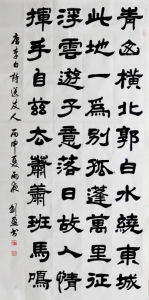 青山橫北郭白水繞東城
此地一為別孤蓬萬里征
浮雲遊子意落日故人情
揮手自兹去蕭蕭班馬鳴
唐李白詩送友人 丙申夏雨